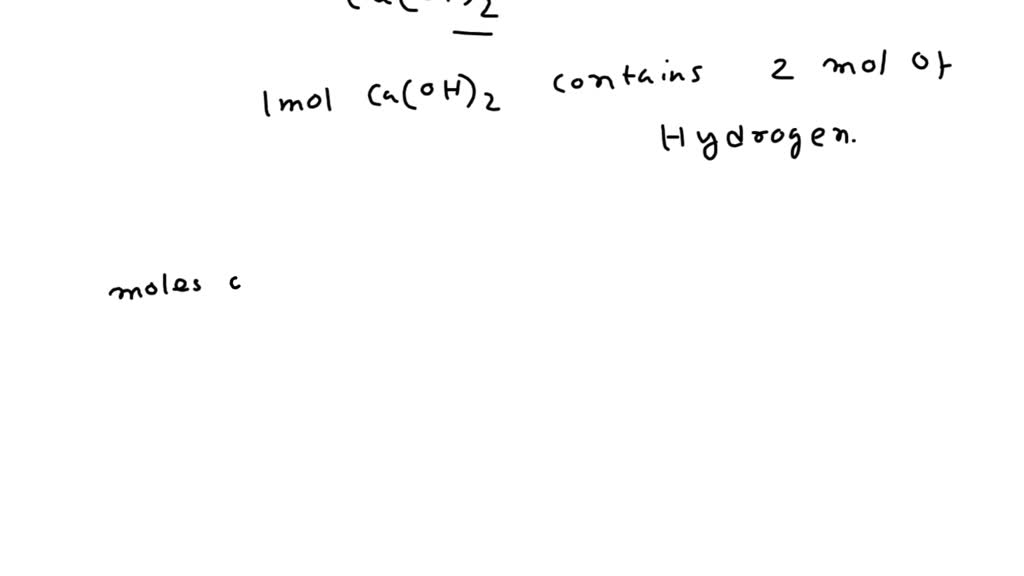 Ca(OH)2
1mol Ca(OH)2 contains 2 mol of
Hydrogen.
moles c